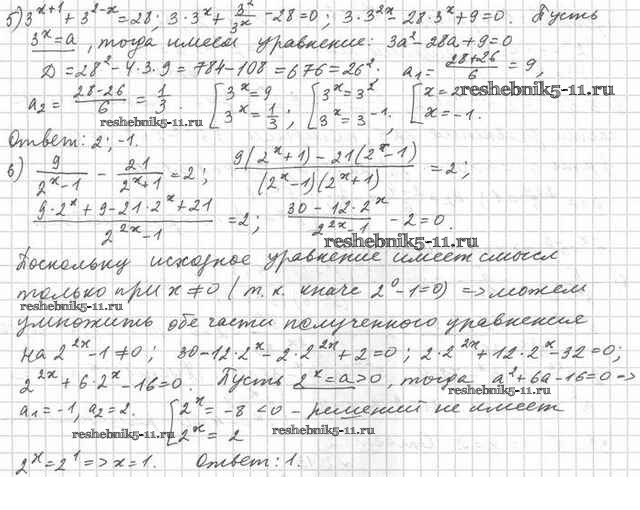 5) 3^{x+1} + 3^{2-x} = 28; 3·3^x + 3^2/3^x - 28 = 0; 3·3^{2x} - 28·3^x + 9 = 0. Пусть
3^x = a, тогда имеем уравнение: 3a^2 - 28a + 9 = 0
D = 28^2 - 4·3·9 = 784 - 108 = 676 = 26^2. a_1 = (28+26)/6 = 9,
a_2 = (28-26)/6 = 1/3. [3^x = 9 3^x = 1/3; [3^x = 3^2 3^x = 3^{-1}; [x = 2 x = -1.
reshebnik5-11.ru
reshebnik5-11.ru
reshebnik5-11.ru
Ответ: 2; -1.
6) 9/(2^x-1) - 21/(2^x+1) = 2; (9(2^x+1) - 21(2^x-1))/((2^x-1)(2^x+1)) = 2;
(9·2^x + 9 - 21·2^x + 21)/(2^{2x}-1) = 2; (30 - 12·2^x)/(2^{2x}-1) - 2 = 0.
reshebnik5-11.ru
Поскольку исходное уравнение имеет смысл
только при x ≠ 0 (т.к. иначе 2^0 - 1 = 0) => можем
reshebnik5-11.ru
reshebnik5-11.ru
умножить обе части полученного уравнения
на 2^{2x} - 1 ≠ 0; 30 - 12·2^x - 2·2^{2x} + 2 = 0; 2·2^{2x} + 12·2^x - 32 = 0;
2^{2x} + 6·2^x - 16 = 0. Пусть 2^x = a > 0, тогда a^2 + 6a - 16 = 0 ->
reshebnik5-11.ru
a_1 = -1, a_2 = 2. [2^x = -8 < 0 - решений не имеет
2^x = 2
reshebnik5-11.ru
reshebnik5-11.ru
2^x = 2^1 => x = 1. Ответ: 1.